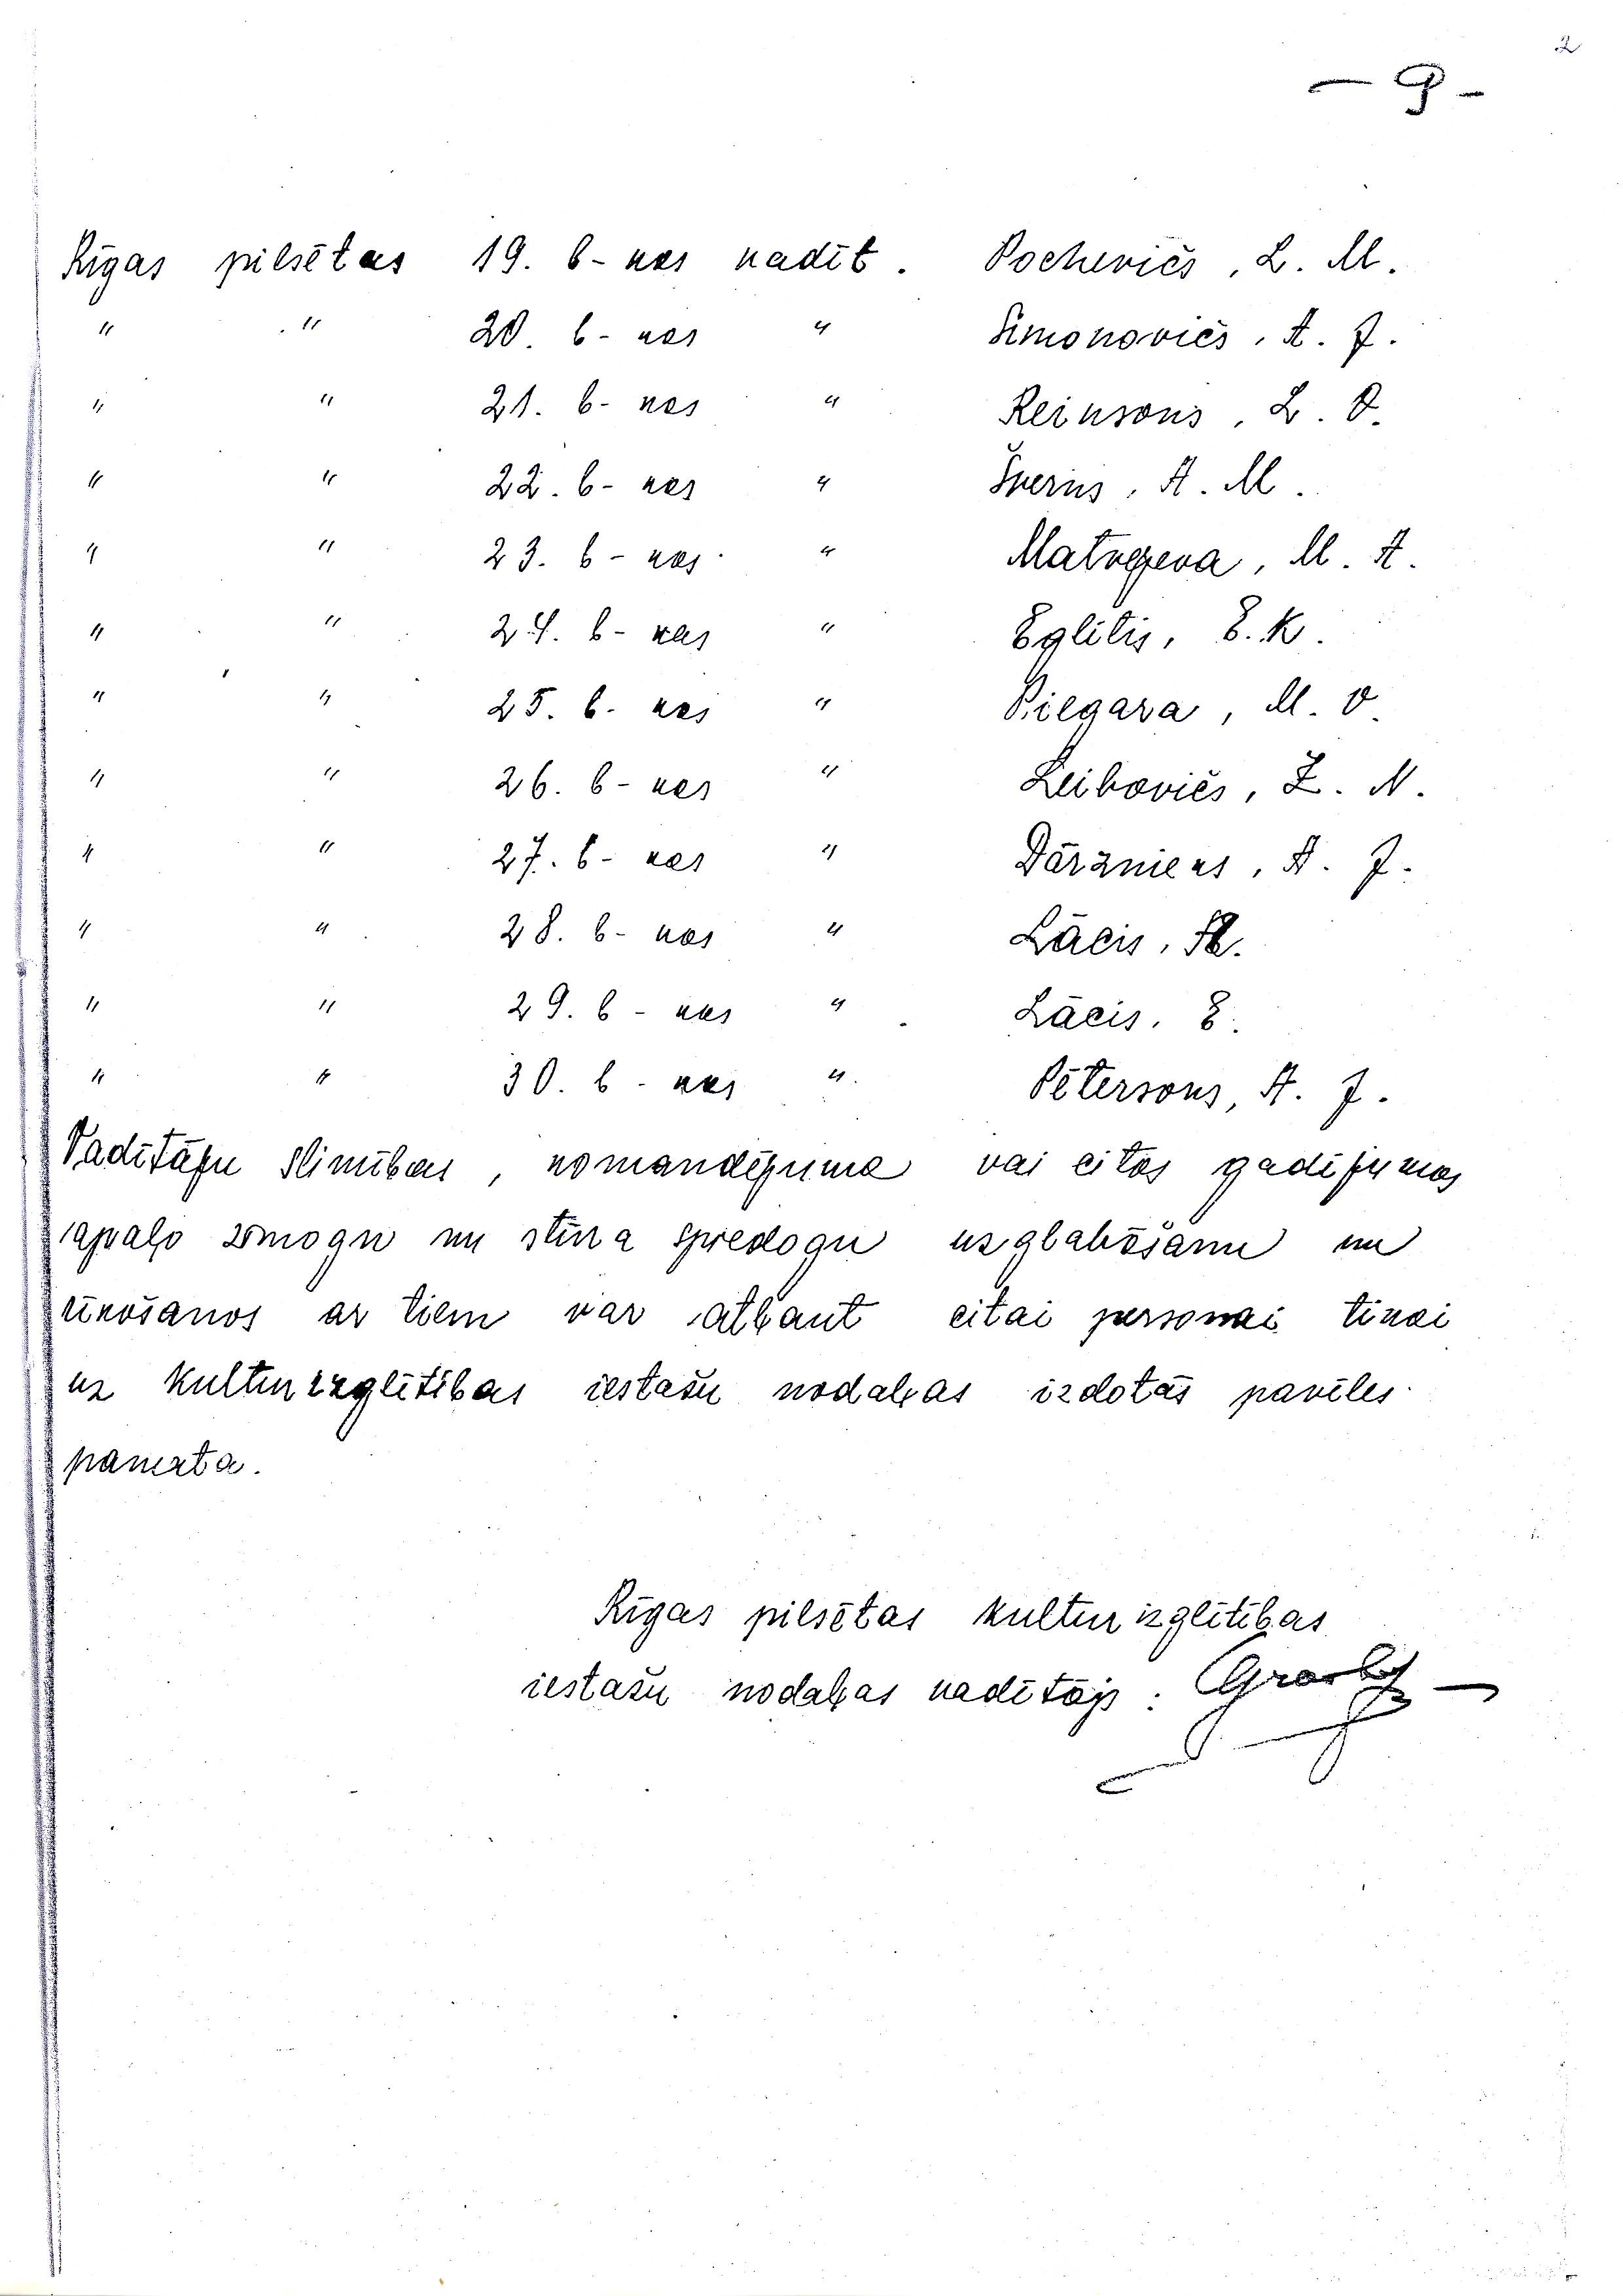 2
- 9 -
Rīgas pilsētas 19. b-kas vadīt. Pochevičs, L. M.
" " 20. b-kas " Simonovičs, A. J.
" " 21. b-kas " Reinsons, L. O.
" " 22. b-kas " Šverns, A. M.
" " 23. b-kas " Matvejeva, M. A.
" " 24. b-kas " Eglītis, E. K.
" " 25. b-kas " M. O.
" " 26. b-kas " Leibovičs, Z. N.
" " 27. b-kas " Dārznieks, A. J.
" " 28. b-kas " Lācis,
" " 29. b-kas " Lācis, E.
" " 30. b-kas " Pētersons, A. J.
Vadītāju slimības, komandējuma vai citos gadījumos
apaļo zīmogu un stūra spiedogu uzglabāšanu un
rīkošanos ar tiem var atļaut citai personai tikai
uz kulturizglītības iestāžu nodaļas izdotās pavēles
pamata.
Rīgas pilsētas kulturizglītības
iestāžu nodaļas vadītājs: